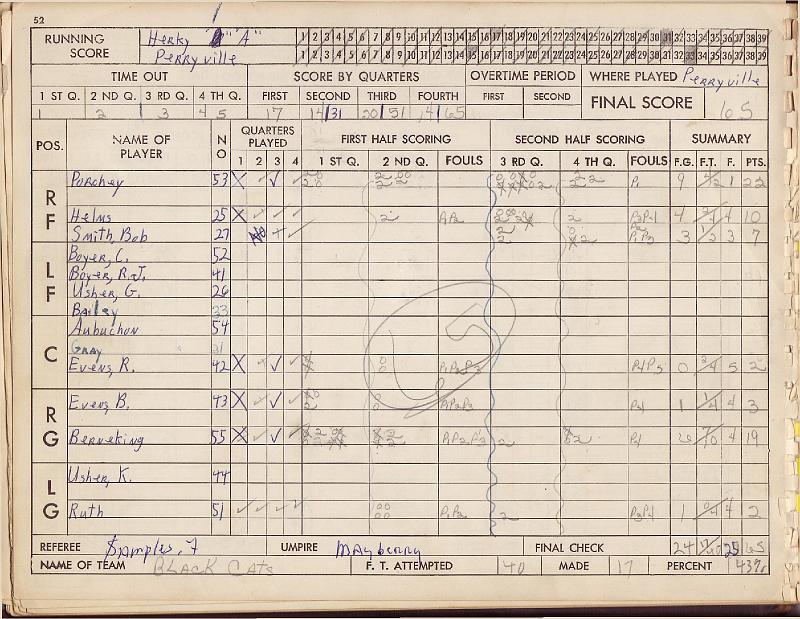 52
RUNNING SCORE Herky "A" 1 2 3 4 5 6 7 8 9 10 11 12 13 14 15 16 17 18 19 20 21 22 23 24 25 26 27 28 29 30 31 32 33 34 35 36 37 38 39
Perryville 1 2 3 4 5 6 7 8 9 10 11 12 13 14 15 16 17 18 19 20 21 22 23 24 25 26 27 28 29 30 31 32 33 34 35 36 37 38 39
TIME OUT SCORE BY QUARTERS OVERTIME PERIOD WHERE PLAYED Perryville
1 ST Q. 2 ND Q. 3 RD Q. 4 TH Q. FIRST SECOND THIRD FOURTH FIRST SECOND FINAL SCORE 65
1 2 3 4 5 17 14/31 20/51 14/65
POS. NAME OF PLAYER NO QUARTERS PLAYED FIRST HALF SCORING SECOND HALF SCORING SUMMARY
1 2 3 4 1 ST Q. 2 ND Q. FOULS 3 RD Q. 4 TH Q. FOULS F.G. F.T. F. PTS.
RF Porchey 53 P1 9 1 22
Helms 25 2 2 4 4 10
Smith, Bob 27 3 1/2 3 7
LF Boyer, C. 52
Boyer, R.J. 41
Usher, G. 26
Bailey 33
C Aubuchon 54
Gray 21
Evens, R. 42 P1P2P3 P4P5 0 2/4 5 2
RG Evens, B. 43 P1P2P3 P4 1 1/4 4 3
Berneking 55 P1P2P3 2 P4 6 7/10 4 19
LG Usher, K. 44
Ruth 51 P1P2 2 P3P4 1 0/4 4 2
REFEREE Samples, F UMPIRE Mayberry FINAL CHECK 24 17/40 25 65
NAME OF TEAM BLACK CATS F. T. ATTEMPTED 40 MADE 17 PERCENT 43%